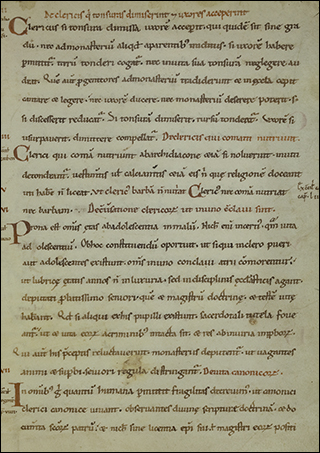 De clericis q tonsura dimiserunt & uxores acceperunt
Clericus si tonsura dimissa uxore accepit, qui quide sit sine gra
du, nec ad monasterii aliqd parentib traditus, si uxore habere
pmittit, iteru tonderi cogat, nec in uita sua tonsura neglegere au
deat. Que aut pgenitores ad monasteriu tradiderunt & in eccla cepit
cantare & legere, nec uxore ducere, nec monasteriu deserere poterit, s
si discesserit reducat. Si tonsura dimiserit, rursu tondeat. Uxore si
usurpauerit, dimittere compellat. De clericis qui comam nutriunt.
Clerici qui coma nutriunt ab archidiacono etia si noluerint, inuiti
detondeant, uestimtis ul calciamtis etia eis n que religione deceant
uti habere n liceat. Ut cleric barba n nutriat Cleric nec coma nutriat
nec barbam. De custodia clericor ut in uno c claui sint.
Prona est omis etas ab adolescentia in malu. Nichil eni incerti qm uita
adolescentiu. Ob hoc constituendu oportuit, ut si qui in clero puberes
aut adolescentes existunt, oms in uno conclaui atrii comorent,
ut lubrice etatis annos n in luxuria, sed in disciplinis ecclasticis agant,
deputati pbatissimo seniori, que & magistru doctrine, & teste uite
habeant. Qd si aliqui ex his pupilli existunt, sacerdotali tutela foue
ant, ut & uita eor a criminib intacta sit, & res ab iniuria improbor.
Qui aut his pceptis reluctauerint, monasteriis deputent, ut uagantes
animi & supbi, seuiori regula distringant. De uita canonicor.
In omib qd quantu humana pmittit fragilitas decreuim, ut canonici
clerici canonice uiuant, obseruantes diuine scripture doctrina, & do
cumta scor patru, & nichil sine licentia epi sui l magistri eor positi